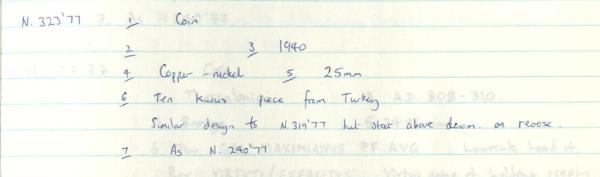 N. 323'77 1 Coin
2 3 1940
4 Copper-nickel 5 25mm
6 Ten Kurus piece from Turkey
Similar design to N.319'77 but star above denom. on reverse.
7 As N. 240'77